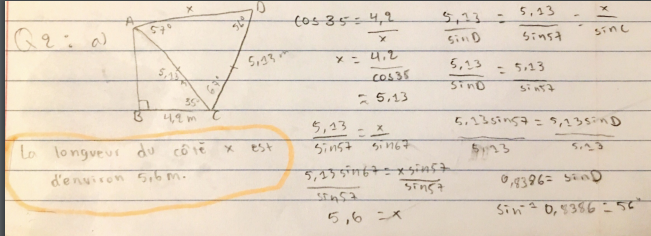 Q2 : a)
A
x
D
57°
56°
5,13
5,13 m
67°
35°
B
4,2 m
C
La longueur du côté x est
d'environ 5,6 m.
cos 35 = 4,2 / x
x = 4,2 / cos35
= 5,13
5,13 / sin57 = x / sin67
5,13 sin67 / sin57 = x sin57 / sin57
5,6 = x
5,13 / sinD = 5,13 / sin57 = x / sinC
5,13 / sinD = 5,13 / sin57
5,13 sin57 / 5,13 = 5,13 sinD / 5,13
0,8386 = sinD
sin⁻¹ 0,8386 = 56°